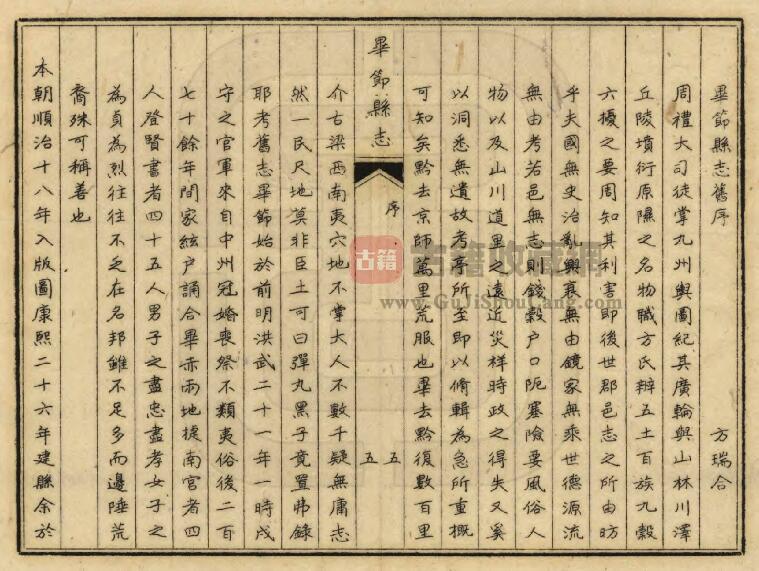 畢節縣志舊序
方瑞合
周禮大司徒掌九州輿圖紀其廣輪與山林川澤
丘陵墳衍原隰之名物職方氏辨五土百族九穀
六擾之要周知其利害即後世郡邑志之所由昉
乎夫國無史治亂興衰無由鏡家無乘世德源流
無由考若邑無志則錢穀戶口阨塞險要風俗人
物以及山川道里之遠近災祥時政之得失又奚
以洞悉無遺故考亭所至即以脩輯為急所重概
可知矣黔去京師萬里荒服也畢去黔復數百里
畢節縣志
序
五五
介古梁西南夷穴地不掌大人不數千疑無庸志
然一民尺地莫非臣土可曰彈丸黑子竟置弗錄
耶考舊志畢節始於前明洪武二十一年一時戍
守之官軍來自中州冠婚喪祭不類夷俗後二百
七十餘年間家絃户誦合畢赤兩地捷南宮者四
人登賢書者四十五人男子之盡忠盡孝女子之
為貞為烈往往不乏在名邦雖不足多而邊陲荒
裔殊可稱善也
本朝順治十八年入版圖康熙二十六年建縣余於
古籍
古籍收藏網
www.GuJiShouCang.com